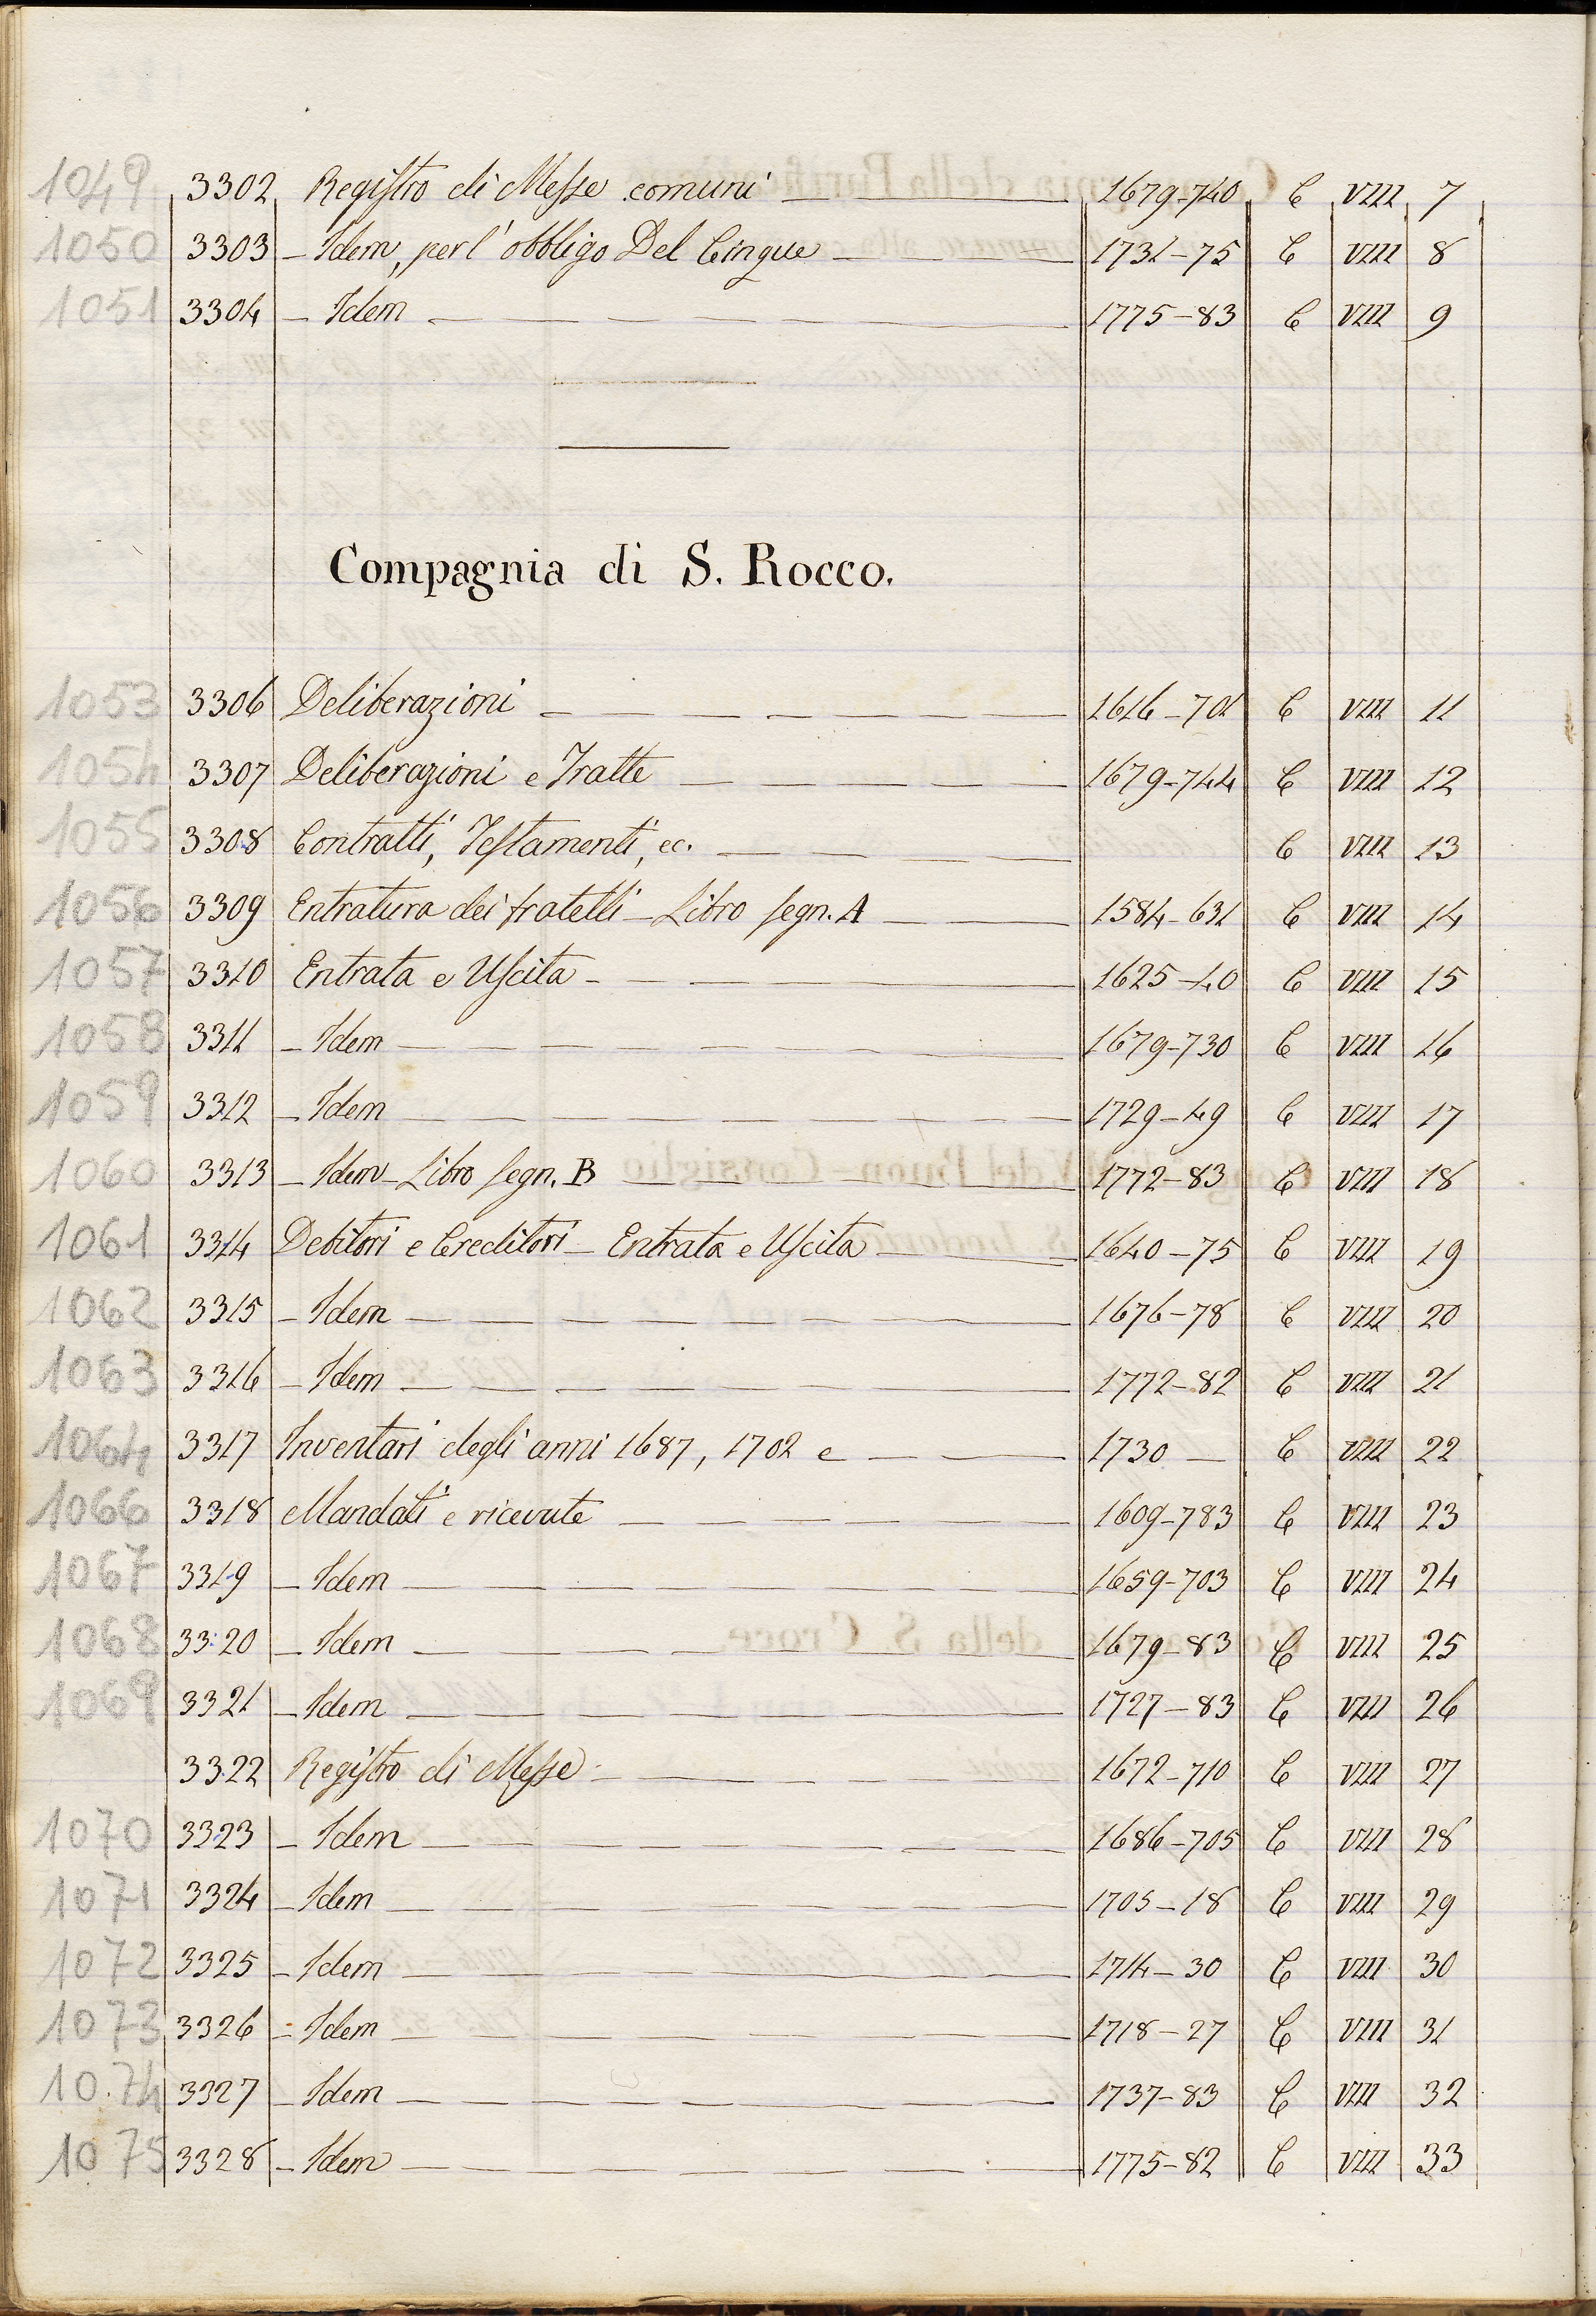 1049 3302 Registro di Messe comuni 1679-740 C VIII 7
1050 3303 - Idem, per l'obbligo Del Cinque 1731-75 C VIII 8
1051 3304 - Idem 1775-83 C VIII 9
Compagnia di S. Rocco.
1053 3306 Deliberazioni 1616-701 C VIII 11
1054 3307 Deliberazioni e Tratte 1679-744 C VIII 12
1055 3308 Contratti, Testamenti, ec. C VIII 13
1056 3309 Entratura dei fratelli - Libro segn. A 1584-631 C VIII 14
1057 3310 Entrata e Uscita 1625-40 C VIII 15
1058 3311 - Idem 1679-730 C VIII 16
1059 3312 - Idem 1729-49 C VIII 17
1060 3313 - Idem - Libro segn. B 1772-83 C VIII 18
1061 3314 Debitori e Creditori - Entrata e Uscita 1640-75 C VIII 19
1062 3315 - Idem 1676-78 C VIII 20
1063 3316 - Idem 1772-82 C VIII 21
1064 3317 Inventari degli anni 1687, 1702 e 1730 C VIII 22
1066 3318 Mandati e ricevute 1609-783 C VIII 23
1067 3319 - Idem 1659-703 C VIII 24
1068 3320 - Idem 1679-83 C VIII 25
1069 3321 - Idem 1727-83 C VIII 26
3322 Registro di Messe 1672-710 C VIII 27
1070 3323 - Idem 1686-705 C VIII 28
1071 3324 - Idem 1705-18 C VIII 29
1072 3325 - Idem 1714-30 C VIII 30
1073 3326 - Idem 1718-27 C VIII 31
1074 3327 - Idem 1737-83 C VIII 32
1075 3328 - Idem 1775-82 C VIII 33